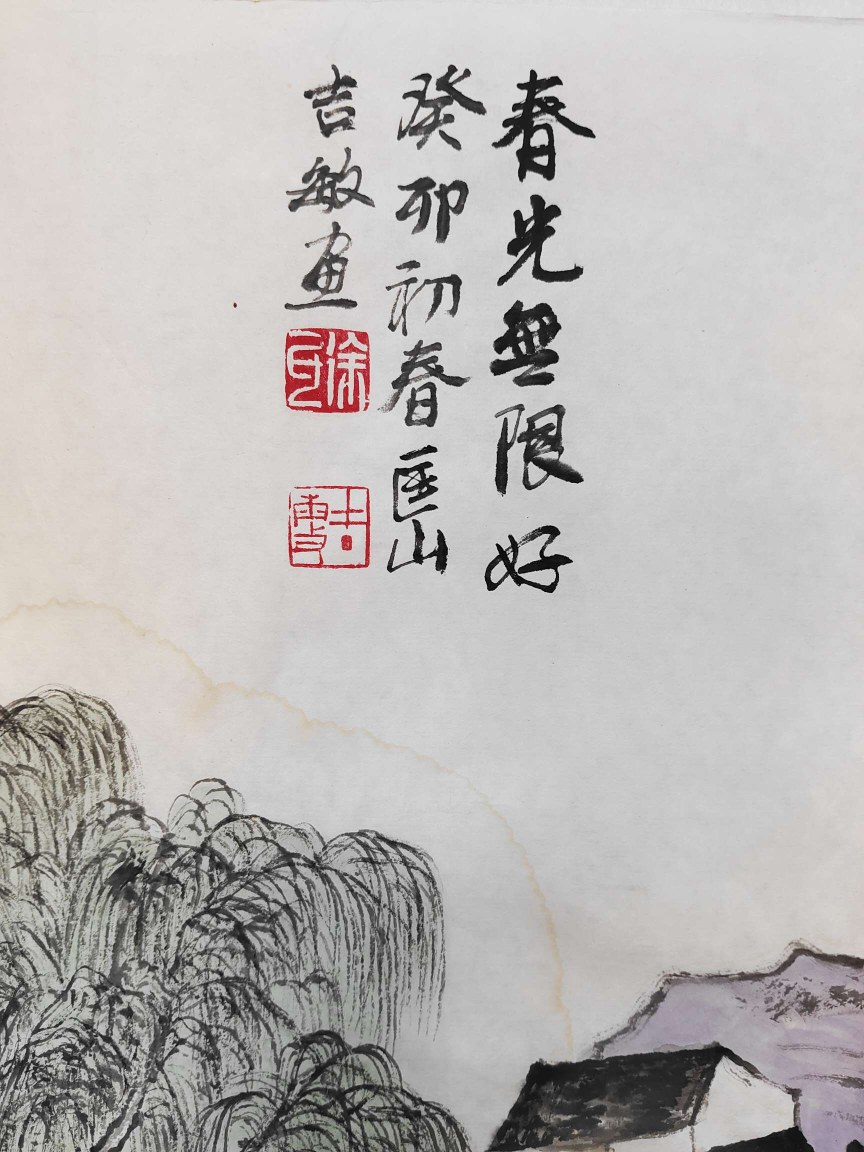 春光無限好
癸卯初春匡山
吉敏画
徐